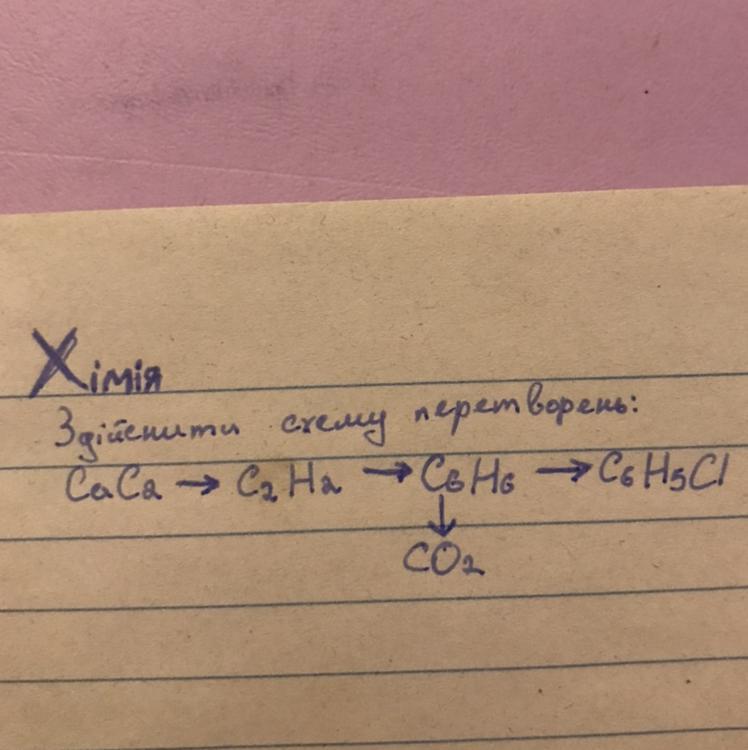 Хімія
Здійснити схему перетворень:
CaC2 → C2H2 → C6H6 → C6H5Cl
↓
CO2